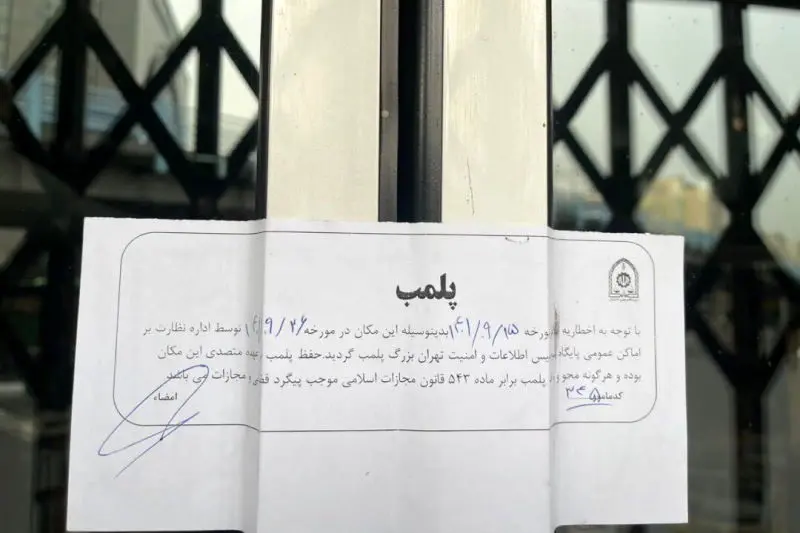 پلمب
با توجه به اخطاریه مورخه ۱۴۰۱/۹/۱۵ بدینوسیله این مکان در مورخه ۱۴۰۱/۹/۲۶ توسط اداره نظارت بر
اماکن عمومی پایگاه پلیس اطلاعات و امنیت تهران بزرگ پلمب گردید.حفظ پلمب بعهده متصدی این مکان
بوده و هرگونه محو و پلمب برابر ماده ۵۴۳ قانون مجازات اسلامی موجب پیگرد قضی و مجازات می باشد
کدمامور
امضاء